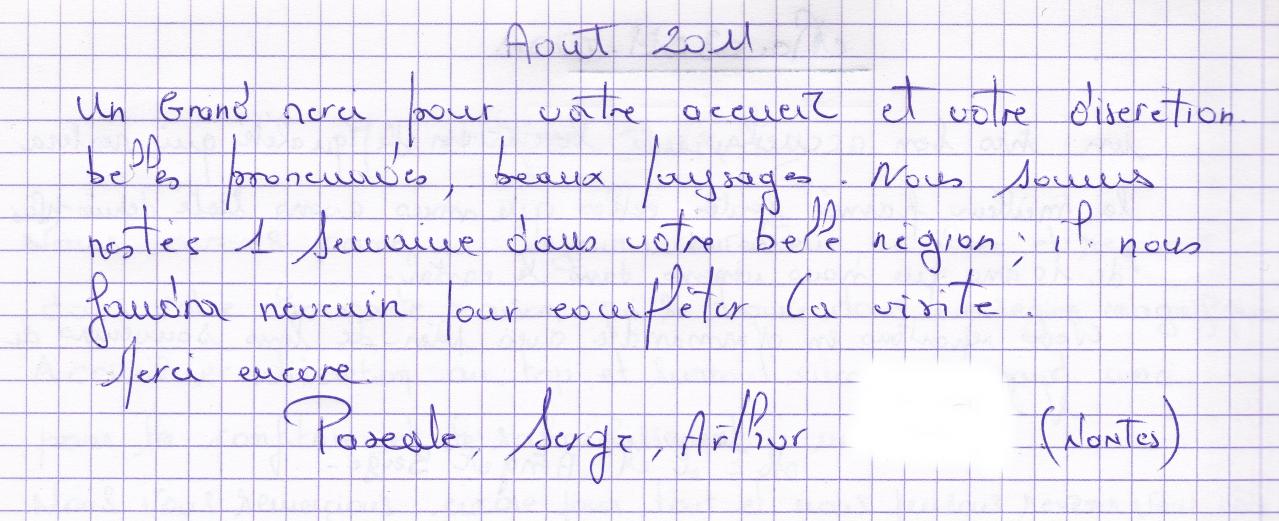 Aout 2011
Un Grand merci pour votre accueil et votre discretion.
belles promenades, beaux paysages. Nous sommes
restés 1 semaine dans votre belle région ; il nous
faudra revenir pour compléter la visite.
Merci encore.
Pascale, Serge, Arthur (Nantes)